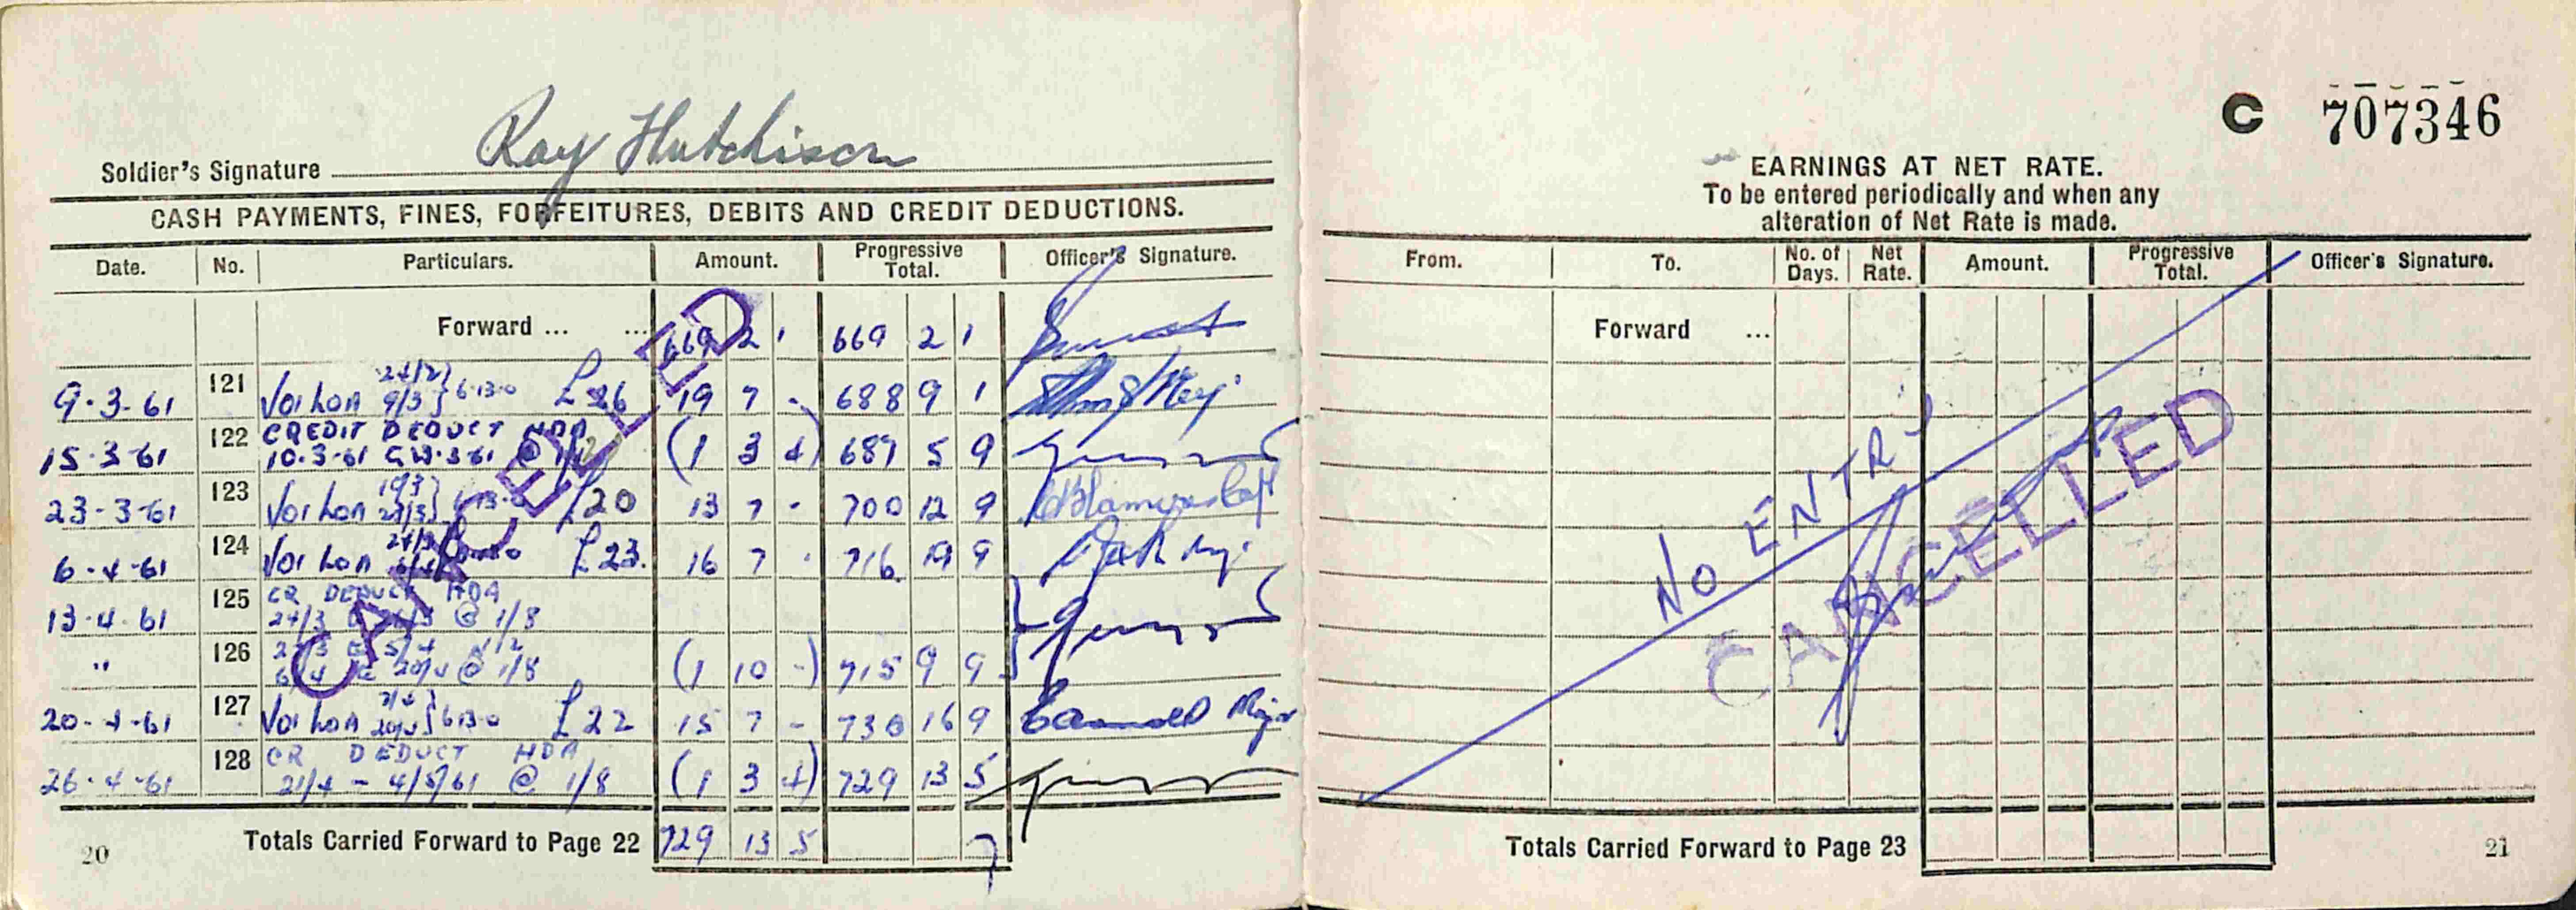 Soldier's Signature Ray Hutchison
CASH PAYMENTS, FINES, FORFEITURES, DEBITS AND CREDIT DEDUCTIONS.
Date. No. Particulars. Amount. Progressive Total. Officer's Signature.
Forward ... ... 669 2 1 669 2 1
9-3-61 121 9/3 6-13-0 £26 19 7 - 688 9 1
15-3-61 122 CREDIT DEDUCT HDA (1 3 4) 687 5 9
10-3-61
23-3-61 123 £20 13 7 - 700 12 9
6-4-61 124 £23. 16 7 - 716 19 9
13-4-61 125 CR DEDUCT HDA
24/3 @ 1/8
" 126 (1 10 -) 715 9 9
@ 1/8
20-4-61 127 6-13-0 £22 15 7 - 730 16 9 Major
26-4-61 128 CR DEDUCT HDA
21/4 - 4/5/61 @ 1/8 (1 3 4) 729 13 5
Totals Carried Forward to Page 22 729 13 5
20
CANCELLED
C 707346
EARNINGS AT NET RATE.
To be entered periodically and when any
alteration of Net Rate is made.
From. To. No. of Days. Net Rate. Amount. Progressive Total. Officer's Signature.
Forward ...
NO ENTRY
CANCELLED
Totals Carried Forward to Page 23
21